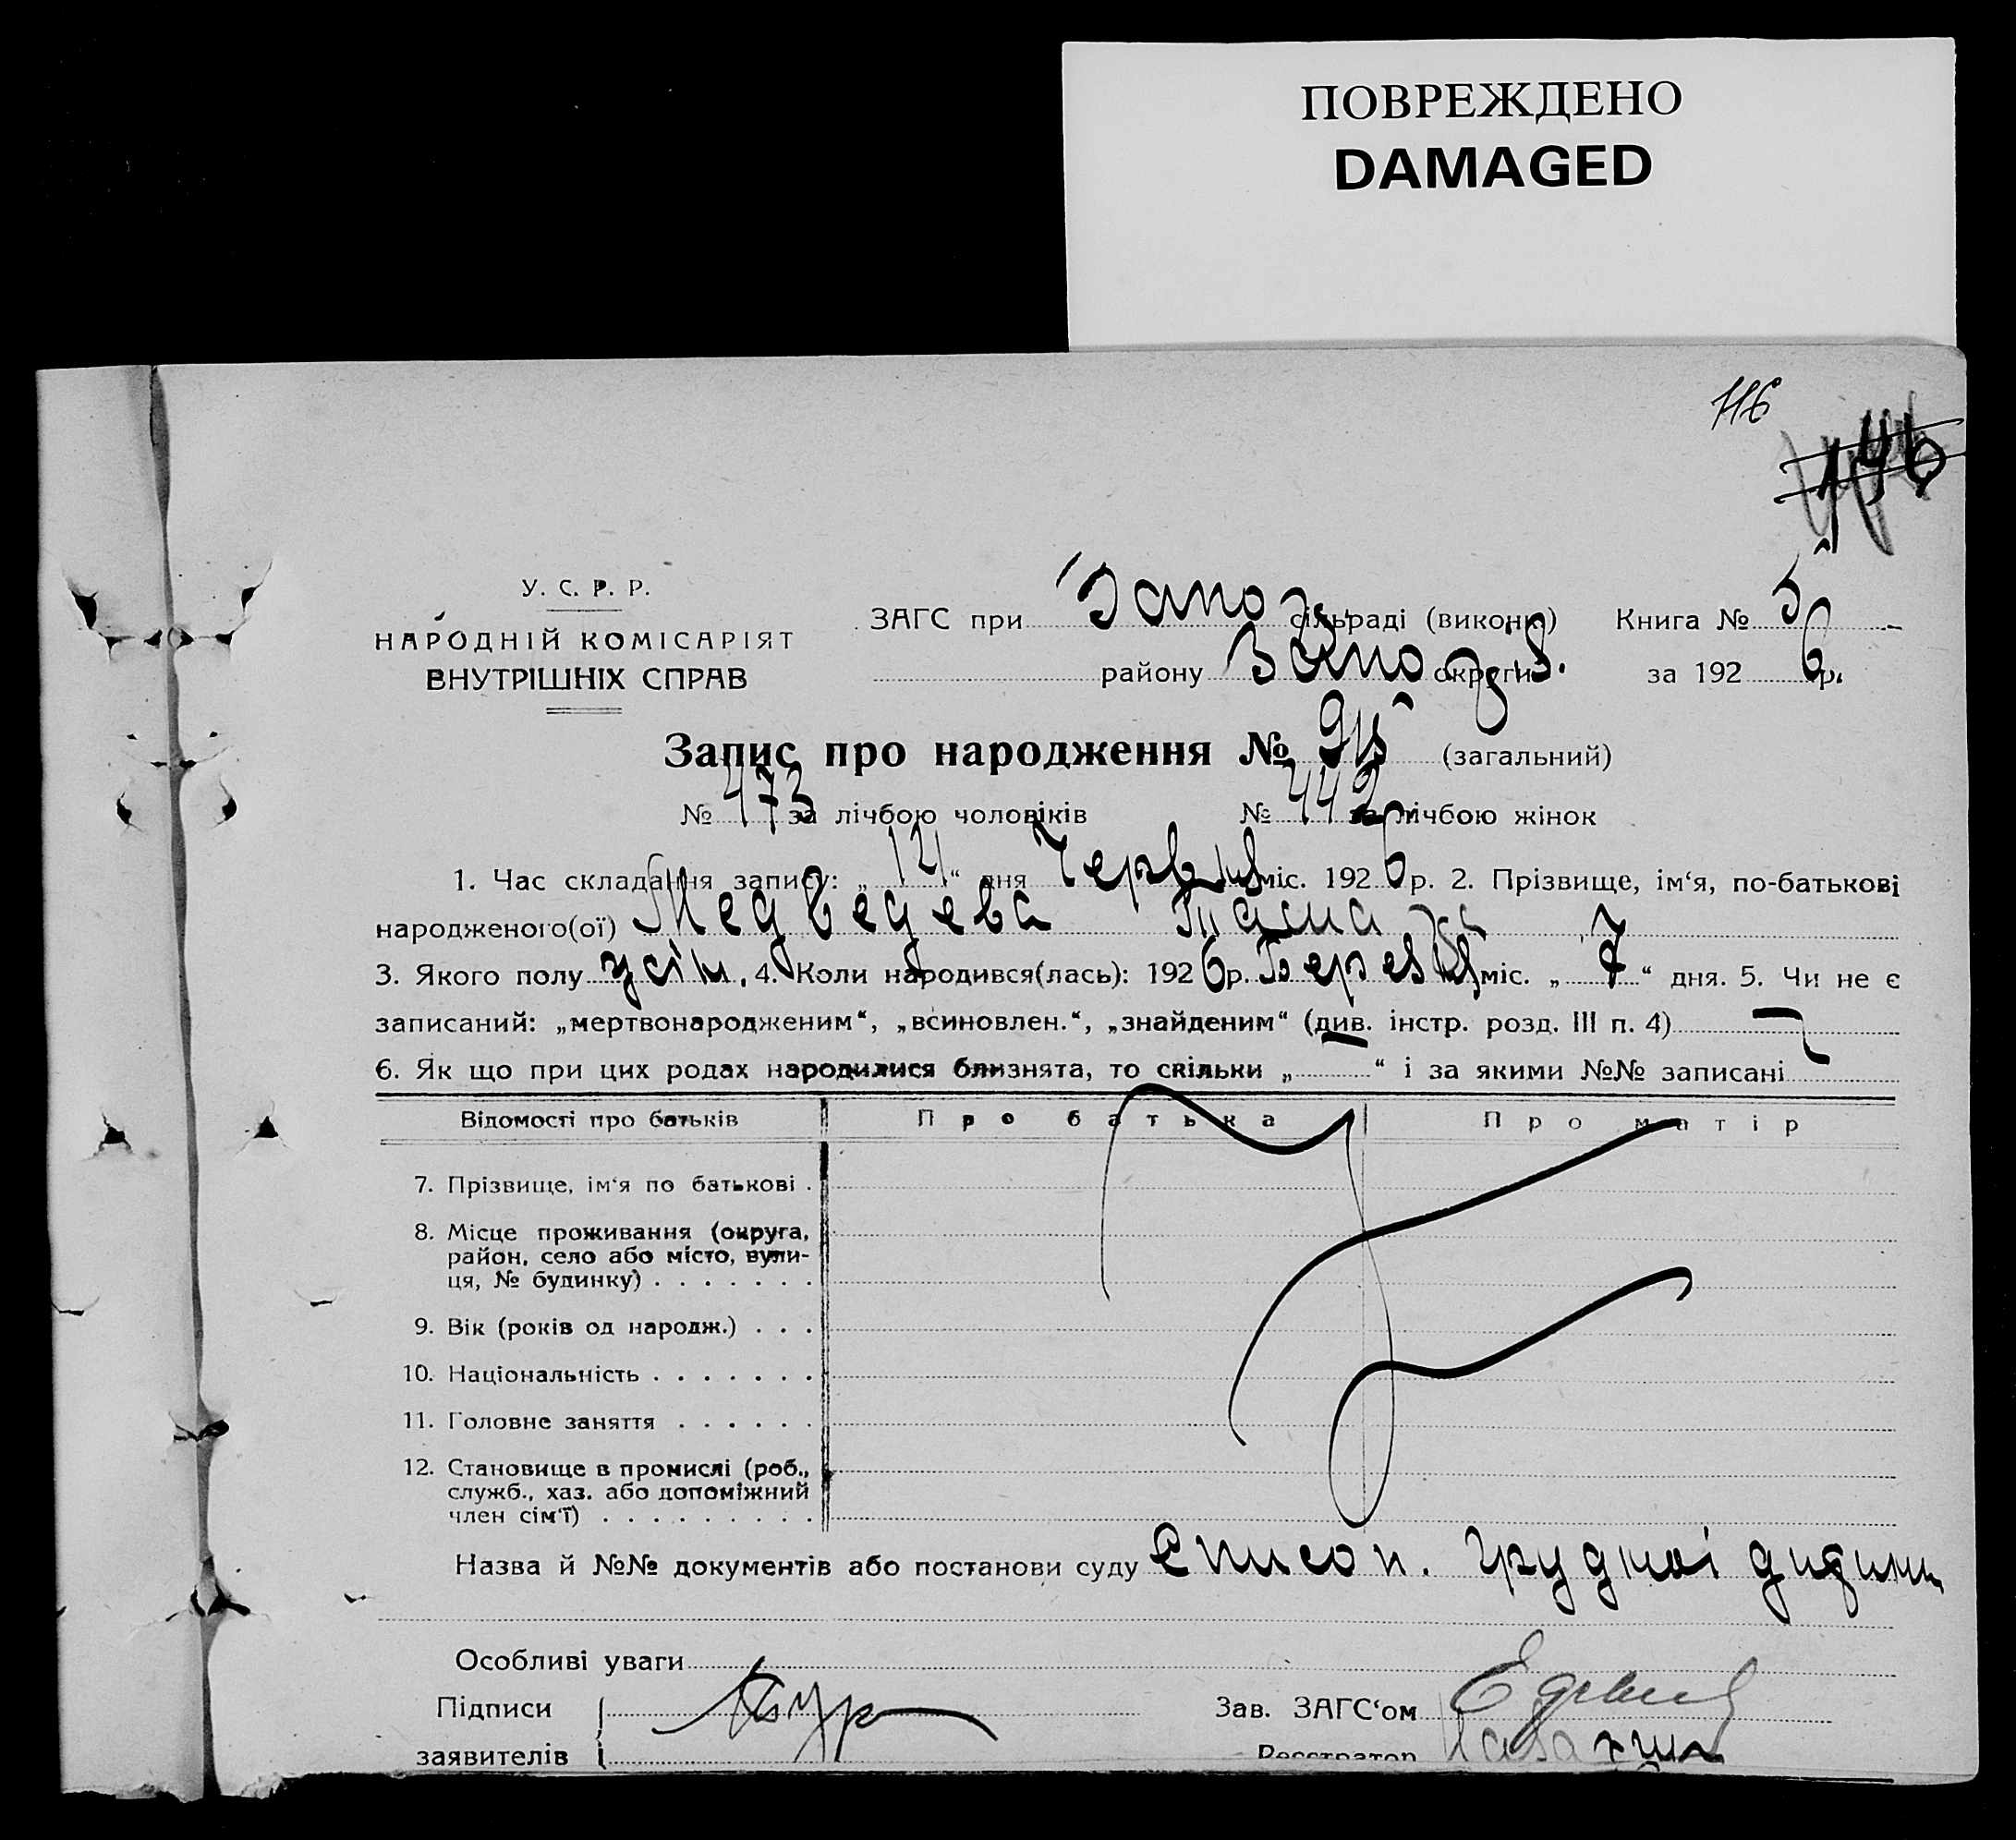 ПОВРЕЖДЕНО
DAMAGED
116
146
У. С. Р. Р.
НАРОДНІЙ КОМІСАРІЯТ
ВНУТРІШНІХ СПРАВ
ЗАГС при Запоз. сільраді (виконк) Книга № 5
району Запоз. округи за 1926 р.
Запис про народження № 915 (загальний)
№ 473 за лічбою чоловіків № 442 за лічбою жінок
1. Час складання запису: „12“ дня Червня міс. 1926 р. 2. Прізвище, ім‘я, по-батькові
народженого(ої) Медведева
3. Якого полу жін. 4. Коли народився(лась): 1926 р. Березня міс. „7“ дня. 5. Чи не є
записаний: „мертвонародженим“, „всиновлен.“, „знайденим“ (див. інстр. розд. III п. 4)
6. Як що при цих родах народилися близнята, то скільки „ “ і за якими №№ записані
Відомості про батьків Про батька Про матір
7. Прізвище, ім‘я по батькові .
8. Місце проживання (округа,
район, село або місто, вули-
ця, № будинку) . . . . . . .
9. Вік (років од народж.) . . .
10. Національність . . . . . . .
11. Головне заняття . . . . . .
12. Становище в промислі (роб.,
служб., хаз. або допоміжний
член сім‘ї) . . . . . . . . .
Назва й №№ документів або постанови суду Список. грудної дитини
Особливі уваги
Підписи Зав. ЗАГС‘ом
заявителів Реєстратор